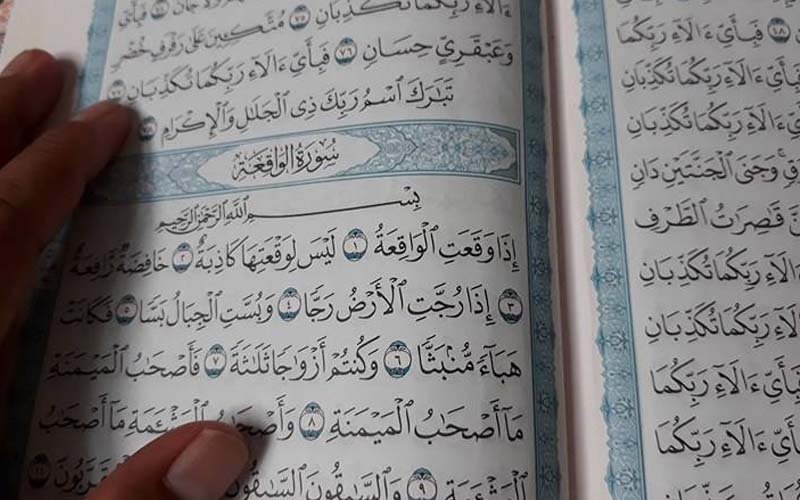 فَبِأَيِّ ءَالَآءِ رَبِّكُمَا
ءَالَآءِ رَبِّكُمَا تُكَذِّبَانِ
ءَالَآءِ رَبِّكُمَا تُكَذِّبَانِ
ءَالَآءِ رَبِّكُمَا تُكَذِّبَانِ
وَجَنَى ٱلْجَنَّتَيْنِ دَانٍ
قَٰصِرَٰتُ ٱلطَّرْفِ
ءَالَآءِ رَبِّكُمَا تُكَذِّبَانِ
ءَالَآءِ رَبِّكُمَا تُكَذِّبَانِ
ءَالَآءِ رَبِّكُمَا
ءَالَآءِ رَبِّكُمَا
ءَالَآءِ رَبِّكُمَا تُكَذِّبَانِ ٧٥ مُتَّكِـِٔينَ عَلَىٰ رَفْرَفٍ خُضْرٍ
وَعَبْقَرِيٍّ حِسَانٍ ٧٦ فَبِأَيِّ ءَالَآءِ رَبِّكُمَا تُكَذِّبَانِ ٧٧
تَبَٰرَكَ ٱسْمُ رَبِّكَ ذِى ٱلْجَلَٰلِ وَٱلْإِكْرَامِ ٧٨
سُورَةُ الوَاقِعَةِ
بِسْمِ ٱللَّهِ ٱلرَّحْمَٰنِ ٱلرَّحِيمِ
إِذَا وَقَعَتِ ٱلْوَاقِعَةُ ١ لَيْسَ لِوَقْعَتِهَا كَاذِبَةٌ ٢ خَافِضَةٌ رَّافِعَةٌ
٣ إِذَا رُجَّتِ ٱلْأَرْضُ رَجًّا ٤ وَبُسَّتِ ٱلْجِبَالُ بَسًّا ٥ فَكَانَتْ
هَبَآءً مُّنۢبَثًّا ٦ وَكُنتُمْ أَزْوَٰجًا ثَلَٰثَةً ٧ فَأَصْحَٰبُ ٱلْمَيْمَنَةِ
مَآ أَصْحَٰبُ ٱلْمَيْمَنَةِ ٨ وَأَصْحَٰبُ ٱلْمَشْـَٔمَةِ مَآ أَصْحَٰبُ
ٱلْمَشْـَٔمَةِ ٩ وَٱلسَّٰبِقُونَ ٱلسَّٰبِقُونَ